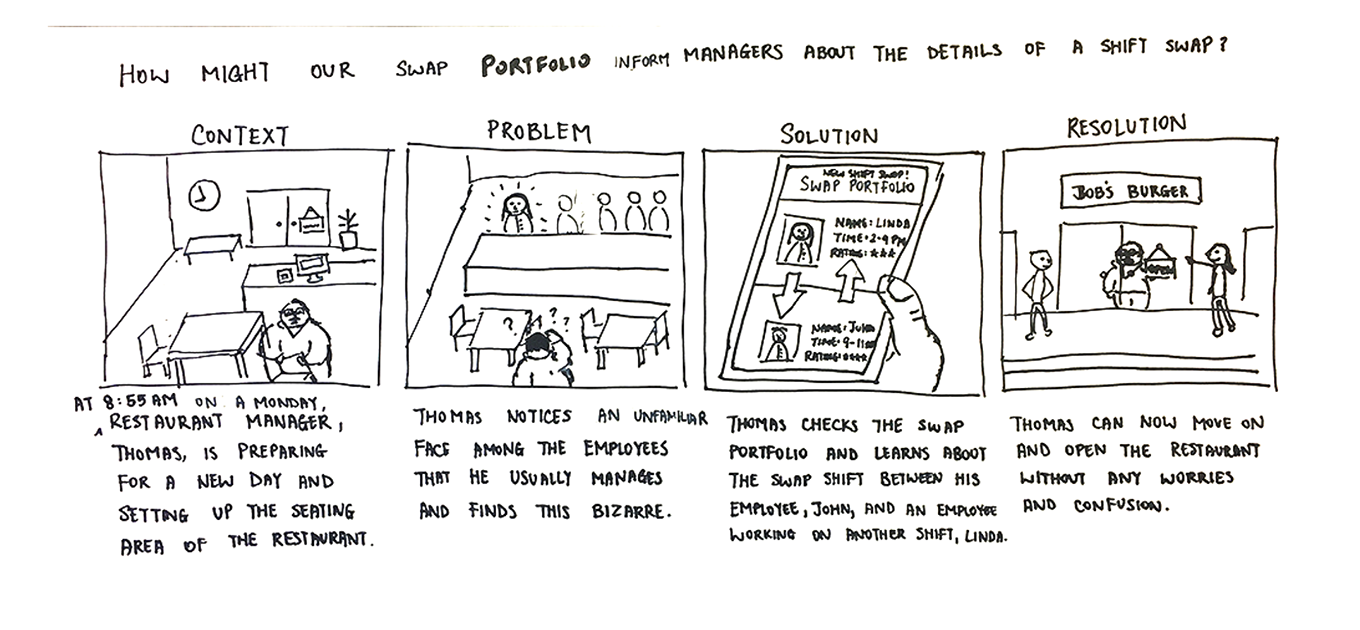 HOW MIGHT OUR SWAP PORTFOLIO INFORM MANAGERS ABOUT THE DETAILS OF A SHIFT SWAP?
CONTEXT
AT 8:55 AM ON A MONDAY,
^ RESTAURANT MANAGER,
THOMAS, IS PREPARING
FOR A NEW DAY AND
SETTING UP THE SEATING
AREA OF THE RESTAURANT.
PROBLEM
? ? ? ?
THOMAS NOTICES AN UNFAMILIAR
FACE AMONG THE EMPLOYEES
THAT HE USUALLY MANAGES
AND FINDS THIS BIZARRE.
SOLUTION
NEW SHIFT SWAP!
SWAP PORTFOLIO
NAME: LINDA
TIME: 2-9 PM
RATING: ★★★
NAME:
TIME: 9-11
RATING: ★★★
THOMAS CHECKS THE SWAP
PORTFOLIO AND LEARNS ABOUT
THE SWAP SHIFT BETWEEN HIS
EMPLOYEE, JOHN, AND AN EMPLOYEE
WORKING ON ANOTHER SHIFT, LINDA.
RESOLUTION
BOB'S BURGER
OPEN
THOMAS CAN NOW MOVE ON
AND OPEN THE RESTAURANT
WITHOUT ANY WORRIES
AND CONFUSION.